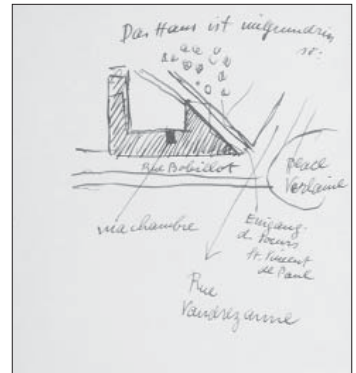 Das Haus ist
so:
Rue Bobillot
place
Verlaine
ma chambre
Eingang
St. Vincent
de Paul
Rue
Vandrezanne